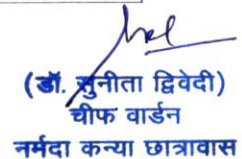 (डॉ. सुनीता द्विवेदी)
चीफ वार्डन
नर्मदा कन्या छात्रावास